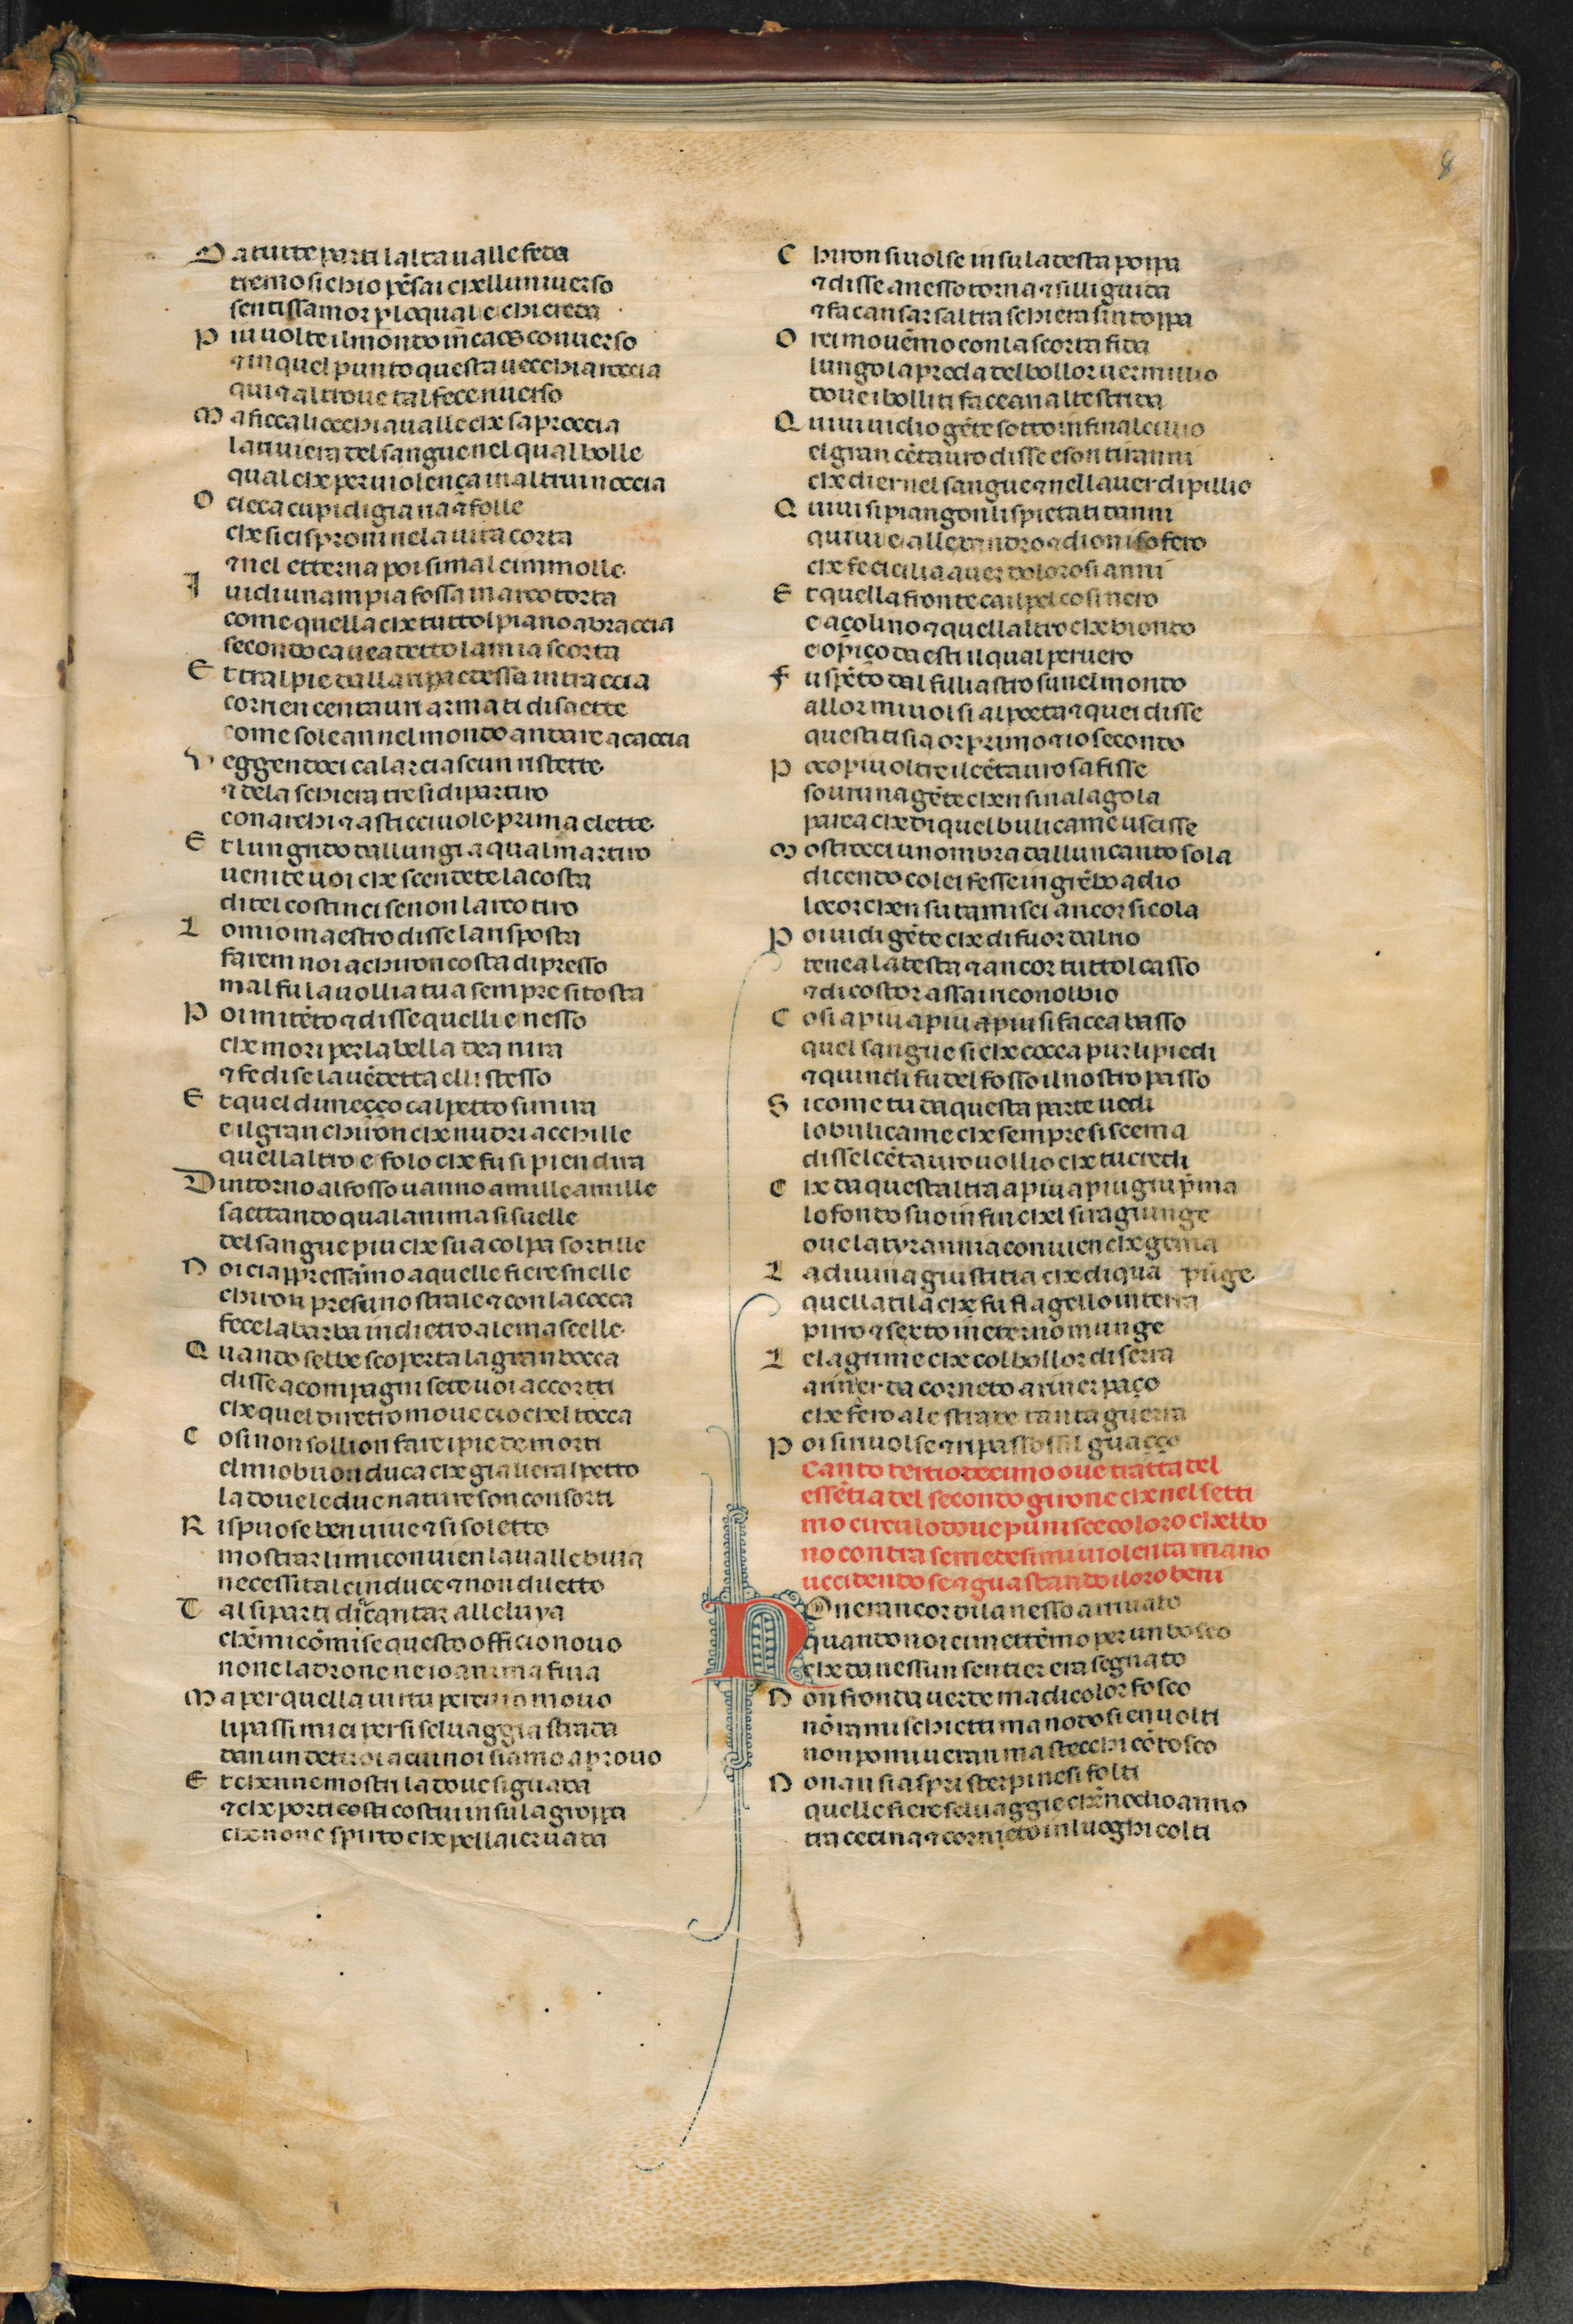 8
Da tutte parti lalta ualle feda
tremo si chio pēsai che lluniuerso
sentissamor p loquale e chi creda
Piu uolte il mondo in caos conuerso
⁊ in quel punto questa uecchia roccia
qui ⁊ altroue tal fece riuerso
Ma ficca li occhi a ualle che saproccia
la riuiera del sangue nel qual bolle
qual che per uiolença in altrui noccia
O cieca cupidigia
che si ci sproni ne la uita corta
⁊ nel etterna poi si mal cimmolle
I uidi unampia fossa in arco torta
come quella che tuttol piano abraccia
secondo cauea detto la mia scorta
Et tral pie dalla ripa ⁊ dessa in traccia
corrien centauri armati di saette
come solean nel mondo andare a caccia
Veggendoci calar ciascun ristette
⁊ de la schiera tre si dipartiro
con archi ⁊ asticciuole prima elette
Et lun grido da llungi a qual martiro
uenite uoi che scendete la costa
ditel costinci se non larco tiro
Lo mio maestro disse la risposta
farem noi a chiron costa di presso
mal fu la uollia tua sempre si tosta
Poi mi tēto ⁊ disse quelli e nesso
che mori per la bella deanira
⁊ fe di se la uēdetta elli stesso
Et quel di meçço cal petto si mira
e il gran chiron che nudri acchille
quellaltro e folo che fu si pien dira
Dintorno al fosso uanno a mille a mille
saettando qual anima si suelle
del sangue piu che sua colpa sortille
Noi ci appressāmo a quelle fiere snelle
chiron prese uno strale ⁊ con la cocca
fece la barba in dietro a le mascelle
Quando sebbe scoperta la gran bocca
disse a compagni sete uoi accorti
che quel diretro moue cio chel tocca
Cosi non sollion fare i pie de morti
el mio buon duca che gia uera l petto
la doue le due nature son consorti
Rispuose ben uiue ⁊ si soletto
mostrar li mi conuien la ualle buia
necessita lci nduce ⁊ non diletto
Tal si parti di cantar alleluya
chē mi cōmise questo officio nouo
non e ladrone ne io anima fuia
Ma per quella uirtu per cu io mouo
li passi miei per si seluaggia strada
dan un de tuoi a cui noi siamo a prouo
Et chenne mostri la doue si guada
⁊ che porti costui in su la groppa
che non e spirto che per laier uada
Chiron si uolse in su la destra poppa
⁊ disse a nesso torna ⁊ si lli guida
⁊ fa cansar saltra schiera sintoppa
Or ci mouēmo con la scorta fida
lungo la proda del bollor uermillio
doue i bolliti faccean alte strida
Quiui uidio gēte sotto infin al cillio
el gran cētauro disse e son tiranni
che dier nel sangue ⁊ nellauer di pillio
Quiui si piangon li spietati danni
quiui e allexandro ⁊ dionisio fero
che fe cicilia auer dolorosi anni
Et quella fronte ca il pel cosi nero
e açolino ⁊ quellaltro che biondo
e opiço da esti il qual per uero
Fu spēto dal filliastro su nel mondo
allor mi uolsi al poeta ⁊ quei disse
questi ti sia or primo ⁊ io secondo
Poco piu oltre il cētauro safisse
souruna gēte chen fin a la gola
parea che di quel bulicame uscisse
Mostrocci unombra dallun canto sola
dicendo colei fesse in grēbo a dio
lo cor chen su tamisci ancor si cola
Poi uidi gēte che di fuor dal rio
tenea la testa ⁊ ancor tuttol casso
⁊ di costor assai riconobbio
Cosi a piu a piu a piu si facea basso
quel sangue si che cocea pur li piedi
⁊ quindi fu del fosso il nostro passo
Si come tu da questa parte uedi
lo bulicame che sempre si scema
dissel cētauro uollio che tu credi
Che da questaltra a piu a piu giu p̄ma
lo fondo suo infin chel si ragiunge
oue la tyrannia conuien che gema
La diuina giustitia che di qua pūge
quellatila che fu flagello in terra
pirro ⁊ sexto in eterno munge
Le lagrime che col bollor diserra
a rinier da corneto a rinier paço
che fero a le strade tanta guerra
Poi si riuolse ⁊ ripassossil guaçço
Canto tertiodecimo oue tratta del
essētia del secondo girone che nel setti
mo circulo doue punisce coloro chebbo
no contra se medesimi uiolenta mano
uccidendo se ⁊ guastando i loro beni
Non era ncor di la nesso arriuato
quando noi ci mettēmo per un bosco
che da nessun sentier era segnato
Non fronda uerde ma di color fosco
nō rami schietti ma nodosi en uolti
non pomi u eran ma stecchi cō tosco
Non an si aspri sterpi ne si folti
quelle fiere seluaggie chēn odio anno
tra cecina ⁊ corneto in luoghi colti